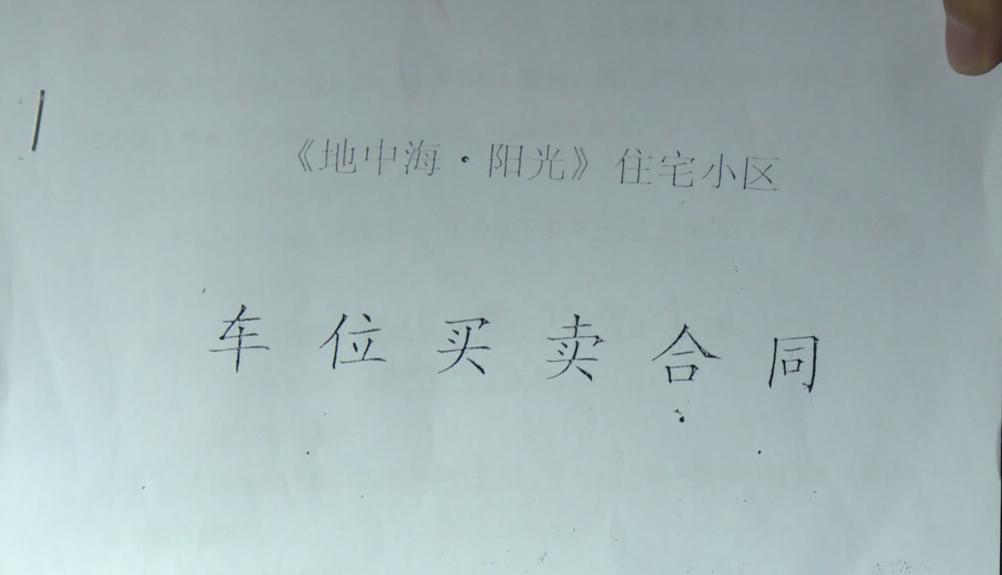 《地中海·阳光》住宅小区
车位买卖合同